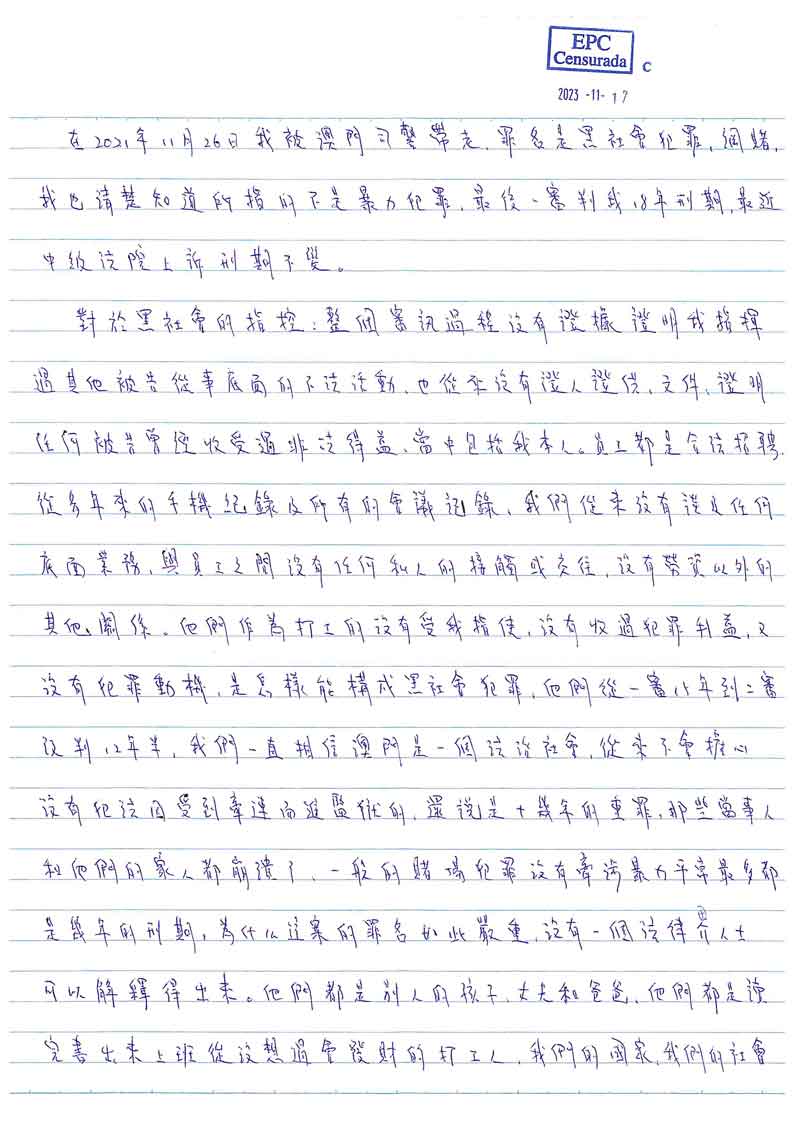 EPC
Censurada
C
2023 -11- 17
在2021年11月26日我被澳門司警帶走,罪名是黑社會犯罪,網賭,
我也清楚知道所指的不是暴力犯罪,最後一審判我18年刑期,最近
中級法院上訴刑期不變。
對於黑社會的指控:整個審訊過程沒有證據證明我指揮
過其他被告從事底面的不法活動,也從來沒有證人證供、文件、證明
任何被告曾經收受過非法得益、當中包括我本人。員工都是合法招聘.
從多年來的手機紀錄及所有的會議記錄、我們從來沒有談及任何
底面業務,與員工之間沒有任何私人的接觸或交往,沒有勞資以外的
其他關係。他們作為打工的沒有受我指使,沒有收過犯罪利益,又
沒有犯罪動機,是怎樣能構成黑社會犯罪,他們從一審15年到二審
改判12年半,我們一直相信澳門是一個法治社會,從來不會擔心
沒有犯法因受到牽連而進監獄的,還說是十幾年的重罪,那些當事人
和他們的家人都崩潰了、一般的賭場犯罪沒有牽涉暴力平常最多都
是幾年的刑期,為什么這案的罪名如此嚴重,沒有一個法律界人士
可以解釋得出來。他們都是別人的孩子、丈夫和爸爸,他們都是讀
完書出來上班從沒想過會發財的打工人,我們的國家,我們的社會